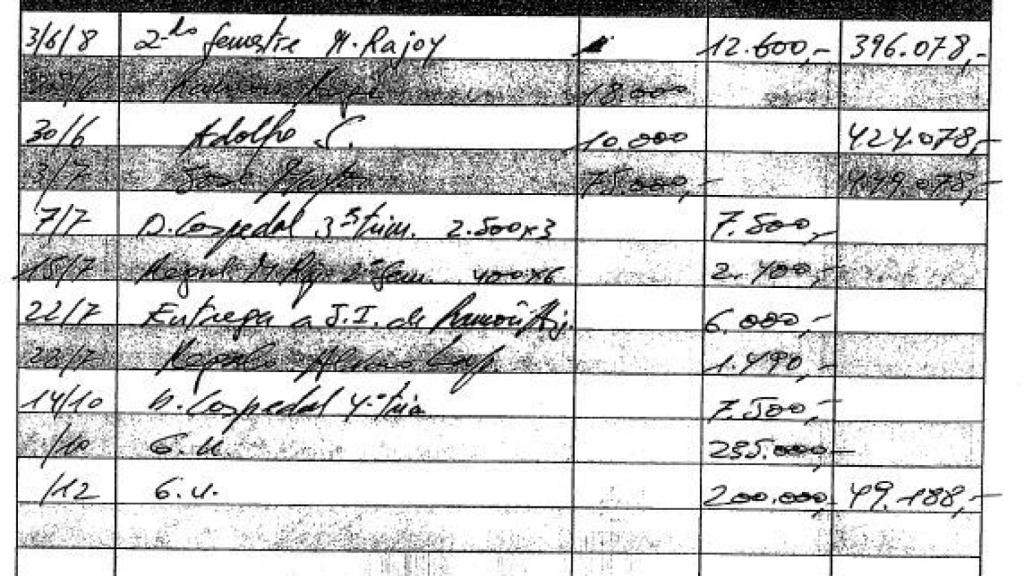 3/6/8 2-do semestre M. Rajoy 12.600,- 396.078,-
18.000
30/6 Adolfo S. 10.000 424.078,-
3/7 José 75.000,- 499.078,-
7/7 D. Cospedal 3er trim. 2.500x3 7.500,-
15/7 400x6 2.400,-
22/7 Entrega a J.I. de 6.000,-
22/7 Regalo 1.490,-
14/10 D. Cospedal 4º 7.500,-
/10 G.U. 235.000,-
/12 G.U. 200.000, 49.188,-